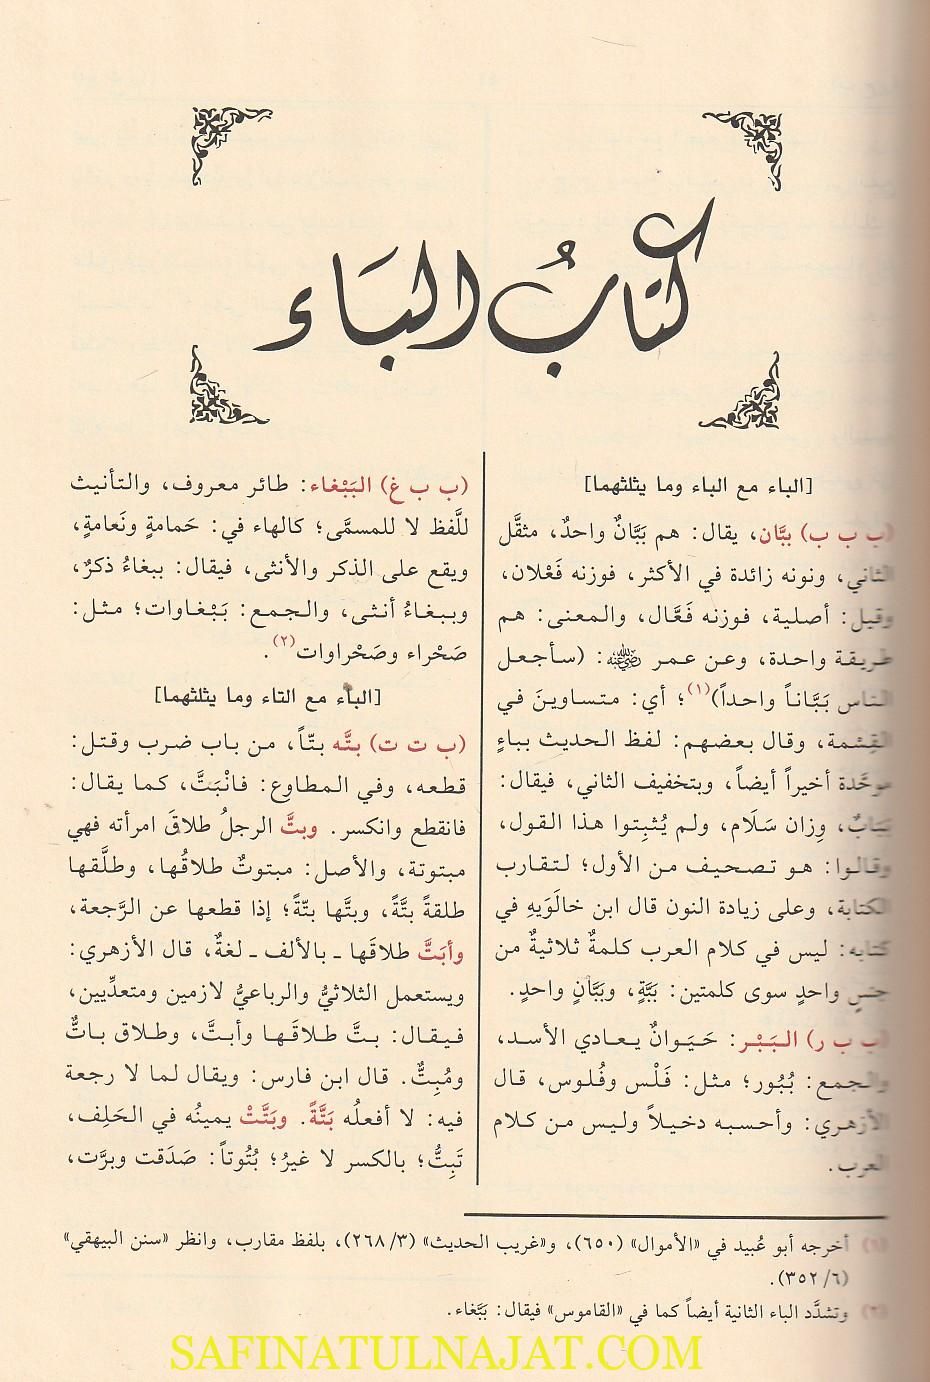 كتابُ البَاء
[الباء مع الباء وما يثلثهما]
(ب ب ب) ببَّان، يقال: هم بَبَّانٌ واحدٌ، مثقَّل
الثاني، ونونه زائدة في الأكثر، فوزنه فَعْلان،
وقيل: أصلية، فوزنه فَعَّال، والمعنى: هم
طريقة واحدة، وعن عمر رضي الله عنه: (سأجعل
الناس بَبَّاناً واحداً)(١)؛ أي: متساوينَ في
القِسْمة، وقال بعضهم: لفظ الحديث بباءٍ
موحَّدة أخيراً أيضاً، وبتخفيف الثاني، فيقال:
بَبَابٌ، وِزان سَلَام، ولم يُثبِتوا هذا القول،
وقالوا: هو تصحيف من الأول؛ لتقارب
الكتابة، وعلى زيادة النون قال ابن خالَوَيهِ في
كتابه: ليس في كلام العرب كلمةٌ ثلاثيةٌ من
جنسٍ واحدٍ سوى كلمتين: بَبَّةٍ، وبَبَّانٍ واحدٍ.
(ب ب ر) البَبْر: حَيَوانٌ يعادي الأسد،
والجمع: بُبُور؛ مثل: فَلْس وفُلوس، قال
الأزهري: وأحسبه دخيلاً وليس من كلام
العرب.
(ب ب غ) البَبْغاء: طائر معروف، والتأنيث
للَّفظ لا للمسمَّى؛ كالهاء في: حَمامةٍ ونَعامةٍ،
ويقع على الذكر والأنثى، فيقال: ببغاءُ ذكرٌ،
وببغاءُ أنثى، والجمع: بَبْغاوات؛ مثل:
صَحْراء وصَحْراوات(٢).
[الباء مع التاء وما يثلثهما]
(ب ت ت) بتَّه بتّاً، من باب ضرب وقتل:
قطعه، وفي المطاوع: فانْبَتَّ، كما يقال:
فانقطع وانكسر. وبتَّ الرجلُ طلاقَ امرأته فهي
مبتوتة، والأصل: مبتوتٌ طلاقُها، وطلَّقها
طلقةً بتَّةً، وبتَّها بتّةً؛ إذا قطعها عن الرَّجعة،
وأبَتَّ طلاقَها ـ بالألف ـ لغةٌ، قال الأزهري:
ويستعمل الثلاثيُّ والرباعيُّ لازمين ومتعدِّيين،
فيقال: بتَّ طلاقَها وأبتَّ، وطلاق باتٌّ
ومُبِتٌّ. قال ابن فارس: ويقال لما لا رجعة
فيه: لا أفعلُه بَتَّةً. وبَتَّتْ يمينُه في الحَلِف،
تَبِتُّ؛ بالكسر لا غيرُ؛ بُتُوتاً: صَدَقت وبرَّت،
(١) أخرجه أبو عُبيد في «الأموال» (٦٥٠)، و«غريب الحديث» (٣/٢٦٨)، بلفظ مقارب، وانظر «سنن البيهقي»
(٦/٣٥٢).
(٢) وتشدَّد الباء الثانية أيضاً كما في «القاموس» فيقال: بَبَّغاء.
SAFINATULNAJAT.COM